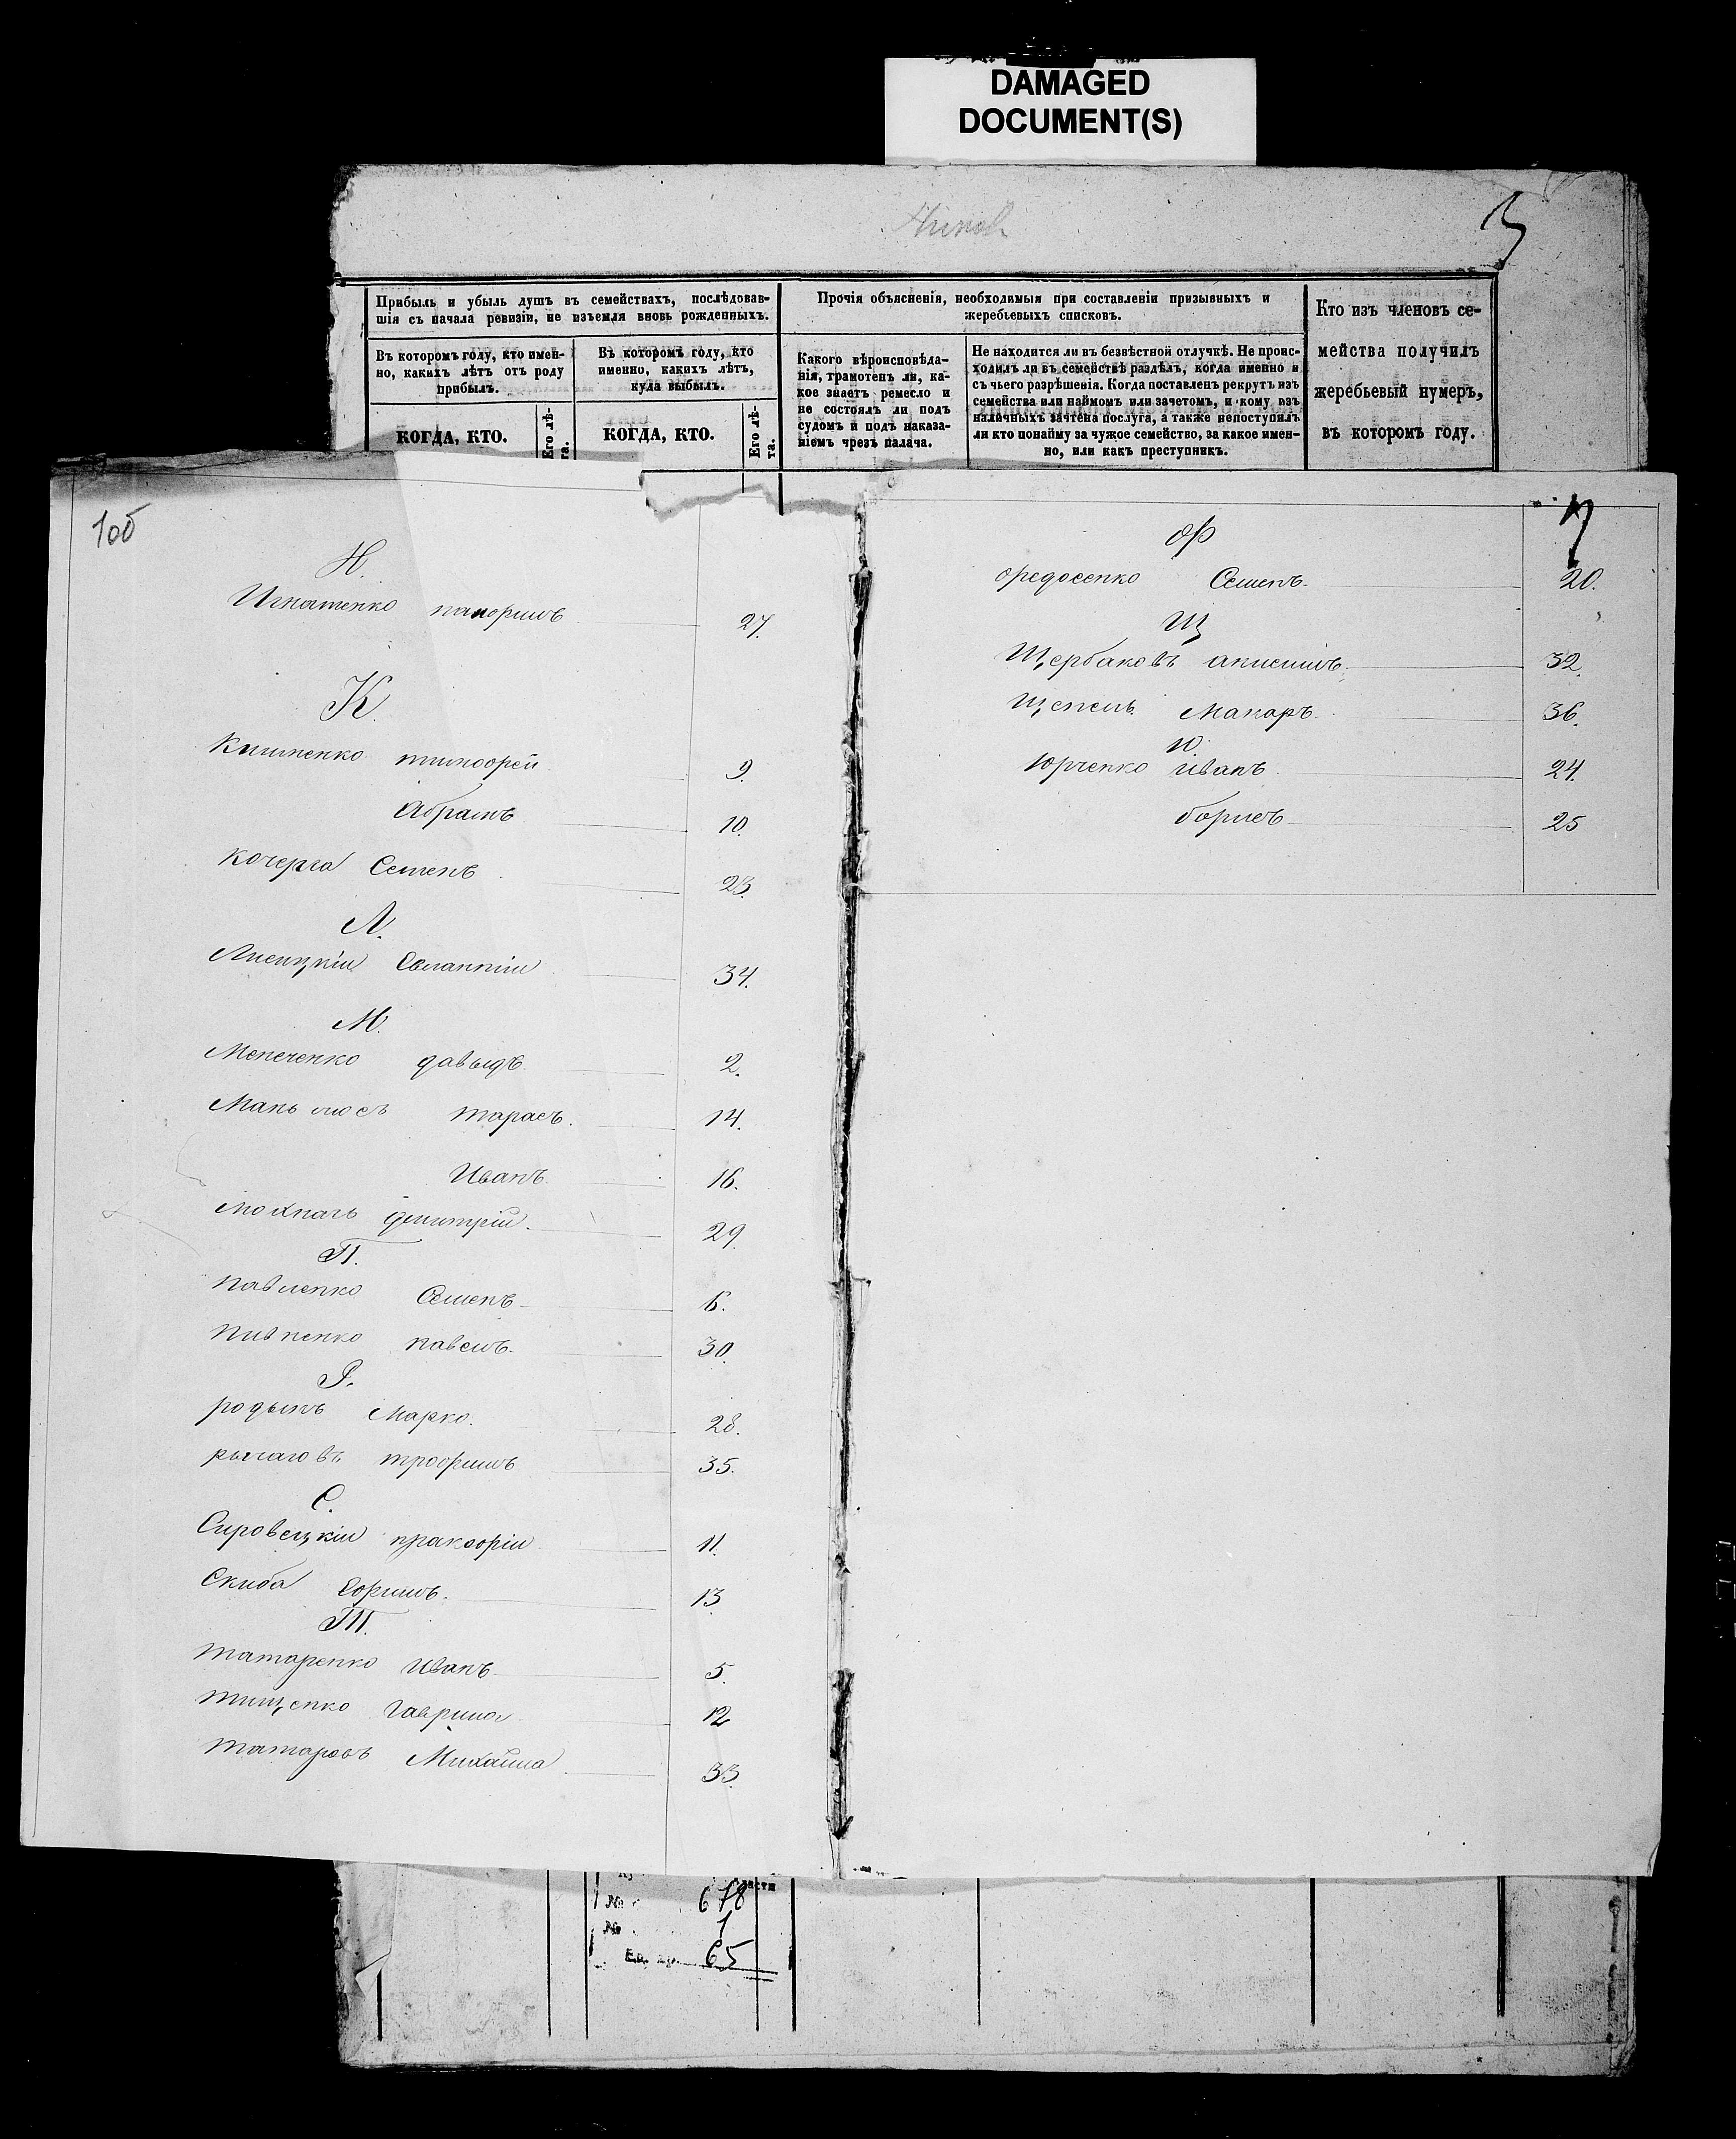 DAMAGED
DOCUMENT(S)
Прибыль и убыль душъ въ семействахъ, послѣдовав-
шія съ начала ревизіи, не изъемля вновь рожденныхъ.
Въ которомъ году, кто имен-
но, каких лѣтъ отъ роду
прибылъ.
Въ которомъ году, кто
именно, какихъ лѣтъ,
куда выбылъ.
КОГДА, КТО.
Его лѣ-
та.
КОГДА, КТО.
Его лѣ-
та.
Прочія объясненія, необходимыя при составленіи призывныхъ и
жеребьевыхъ списковъ.
Какого вѣроисповѣда-
нія, грамотенъ ли, ка-
кое знаетъ ремесло и
не состоялъ ли подъ
судомъ и подъ наказа-
ніемъ чрезъ палача.
Не находится ли въ безвѣстной отлучкѣ. Не проис-
ходилъ ли въ семействѣ раздѣлъ, когда именно и
съ чьего разрѣшенія. Когда поставленъ рекрутъ изъ
семейства или наймомъ или зачетомъ, и кому изъ
наличныхъ зачтена послуга, а также непоступилъ
ли кто понайму за чужое семейство, за какое имен-
но, или какъ преступникъ.
Кто изъ членовъ се-
мейства получилъ
жеребьевый нумеръ,
въ которомъ году.
Н.
Игнатенко 27.
К.
тимофей 9.
Абрамъ 10.
Кочерга Семенъ 23.
Л.
Лисицкій 34.
М.
давыдъ 2.
тарасъ. 14.
Иванъ 16.
дмитрій. 29.
П.
павленко Семенъ 6.
пивненко павелъ. 30.
Р.
Марко. 28.
трофимъ 35.
С.
Сировецкій 11.
Скиба Ефимъ. 13
Т.
татаренко Иванъ 5.
тищенко гаврила 12
татаровъ Михаила 33.
Ф
федосенко Семенъ. 20.
Щ
Щербаковъ 32.
Макаръ 36.
Ю.
Юрченко иванъ 24.
борисъ 25
№ 678
№ 1
65